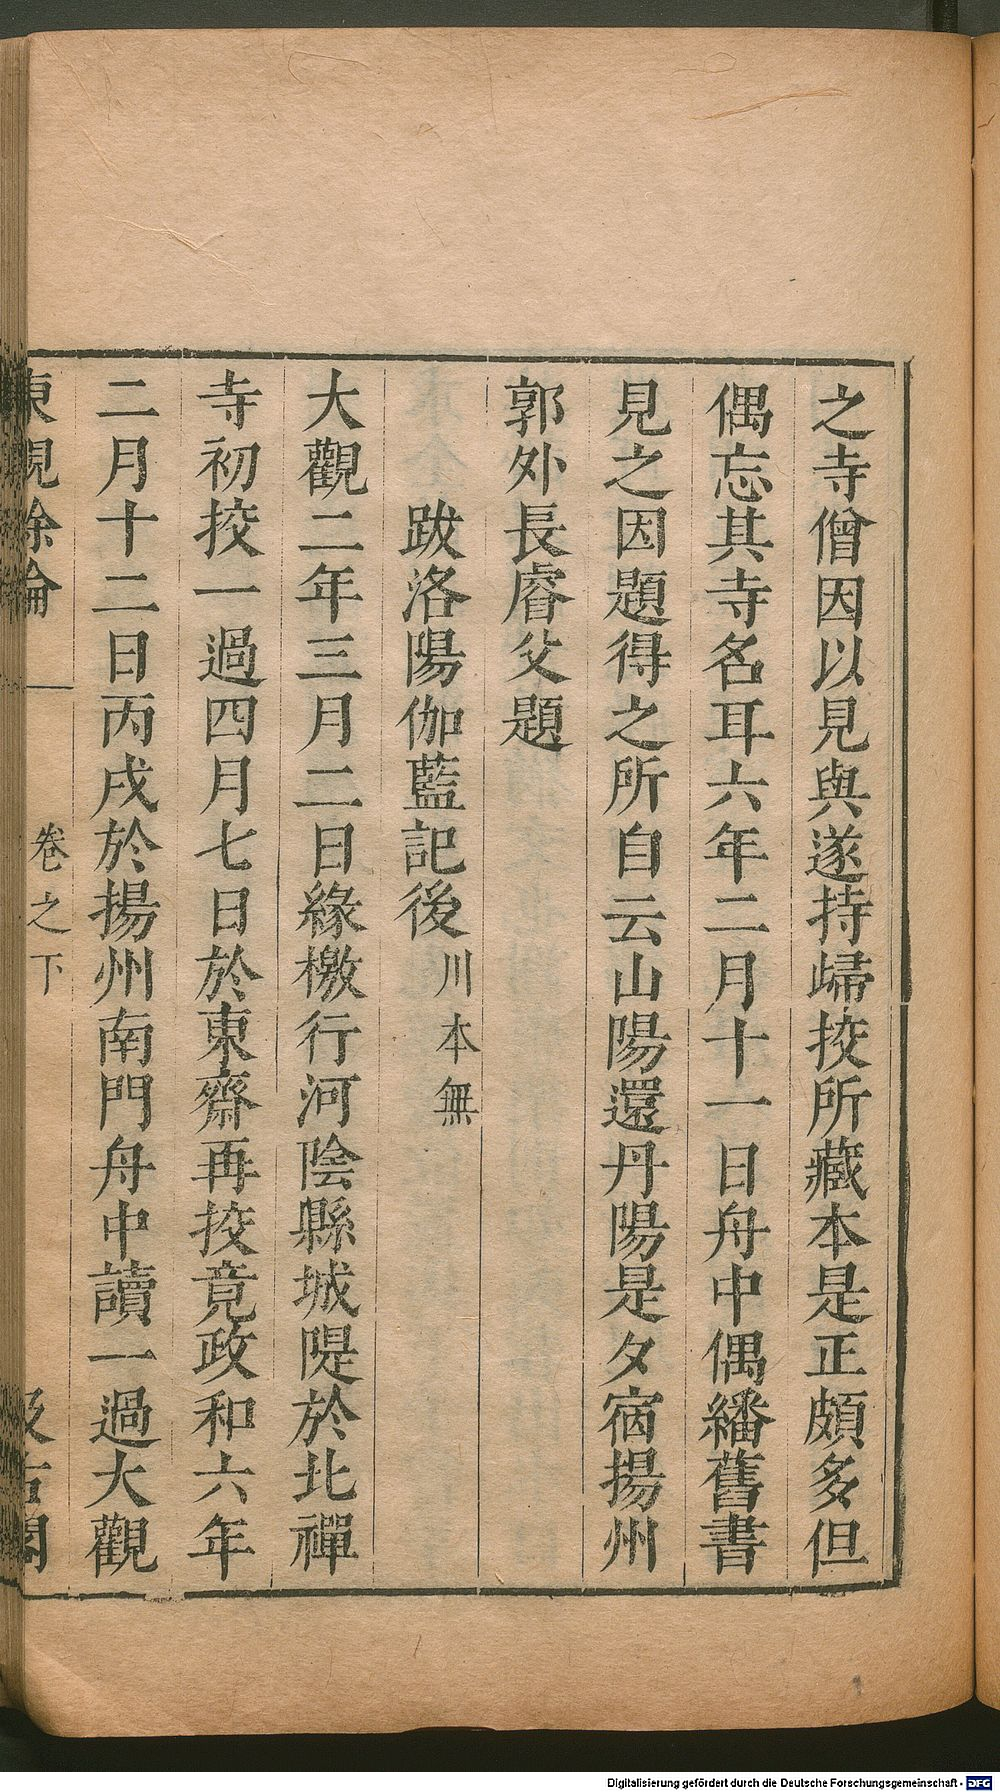 之寺僧因以見與遂持歸挍所藏本是正頗多但
偶忘其寺名耳六年二月十一日舟中偶繙舊書
見之因題得之所自云山陽還丹陽是夕宿揚州
郭外長睿父題
跋洛陽伽藍記後川本無
大觀二年三月二日緣檄行河陰縣城隄於北禪
寺初挍一過四月七日於東齋再挍竟政和六年
二月十二日丙戌於揚州南門舟中讀一過大觀
東觀餘論 卷之下 汲古閣
Digitalisierung gefördert durch die Deutsche Forschungsgemeinschaft - DFG